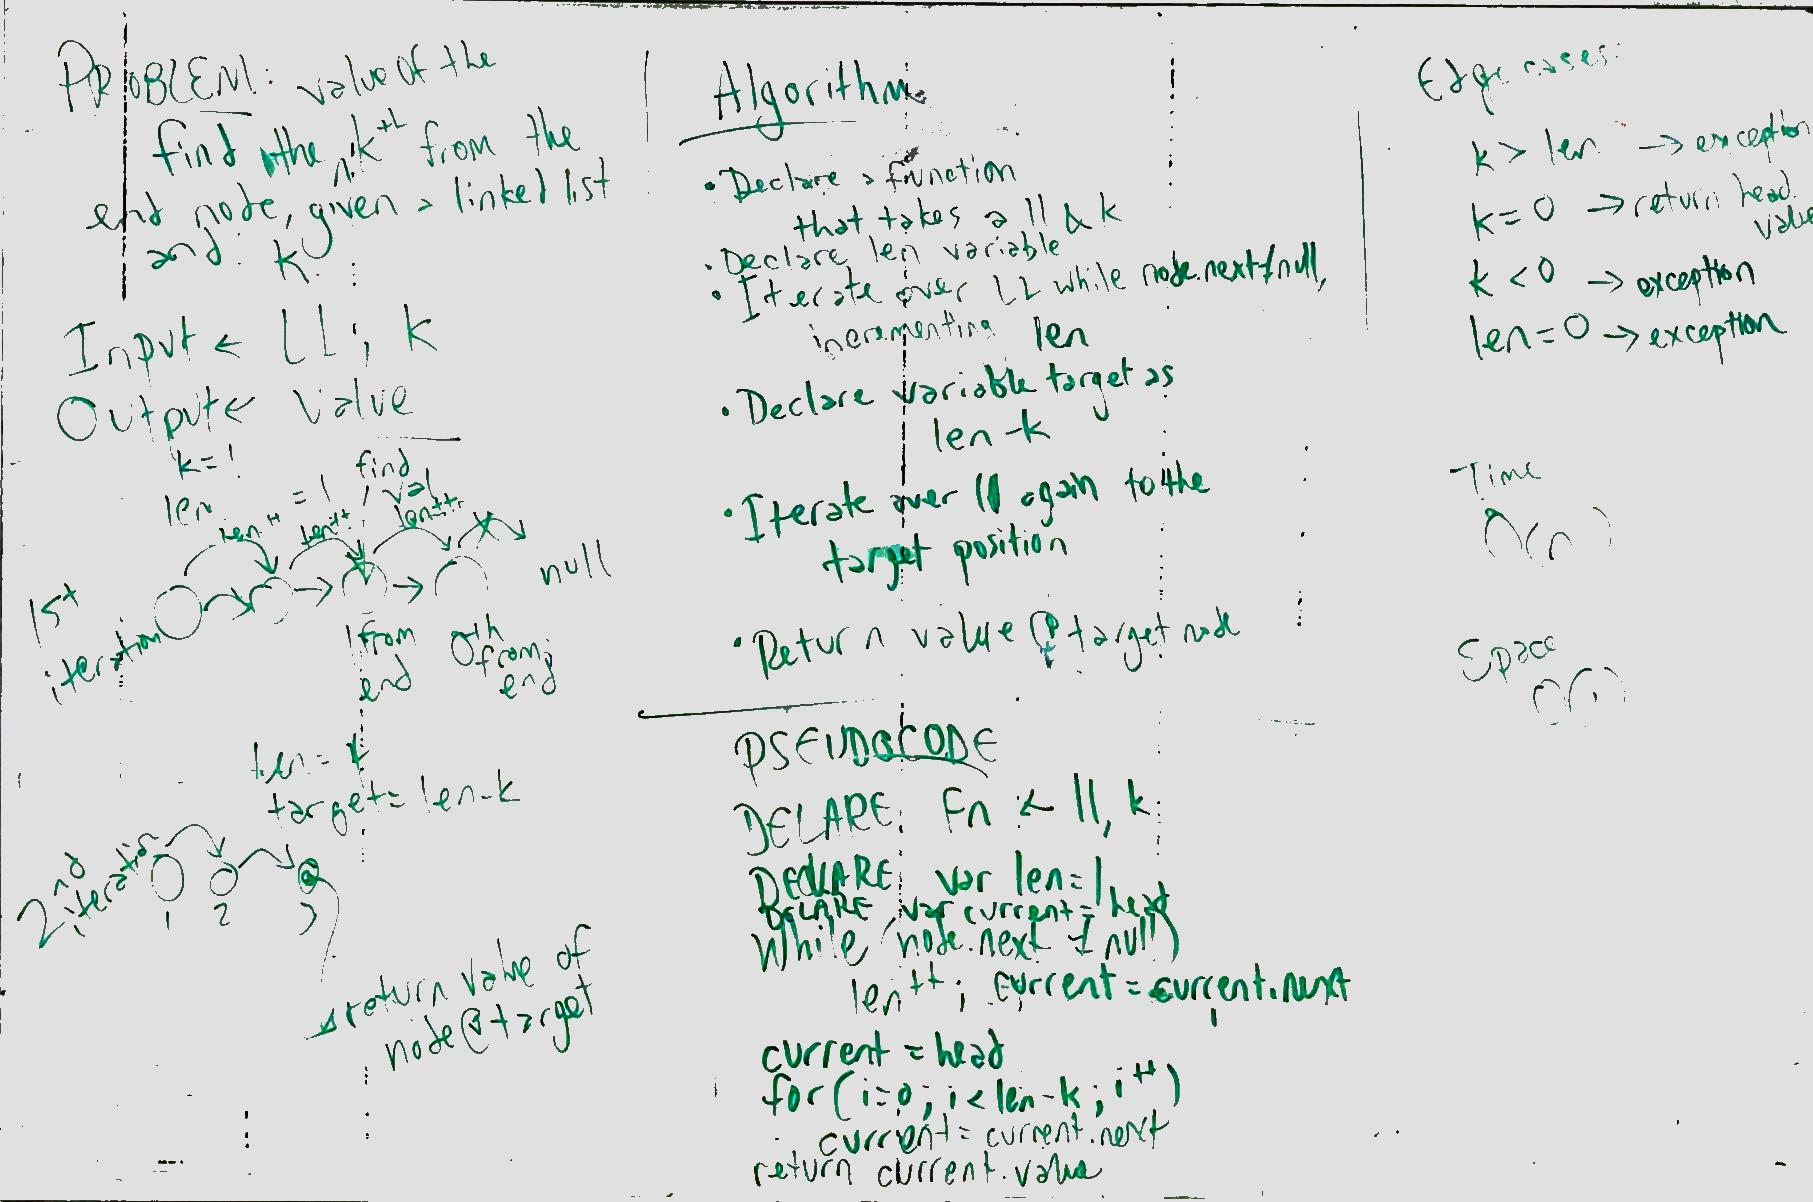 PROBLEM: value of the
find the "kth from the
end node, given a linked list
and k.
Input ← LL, k
Output ← value
k=1
len = 1
find
val
len++ len++ len++
null
1st
iteration
1 from
end
0th
from
end
len =
target = len-k
2nd
iteration
1 2 3
return value of
node @ target
Algorithm
• Declare a function
that takes a ll & k
• Declare len variable
• Iterate over LL while node.next ≠ null,
incrementing len
• Declare variable target as
len - k
• Iterate over ll again to the
target position
• Return value @ target node
PSEUDOCODE
DELARE Fn ← ll, k
DECLARE var len = 1
DELARE var current = head
While (node.next ≠ null)
len++; current = current.next
current = head
for (i=0; i < len-k; i++)
current = current.next
return current.value
Edge cases:
k > len → exception
k=0 → return head
value
k < 0 → exception
len = 0 → exception
Time
O(n)
Space
O(1)